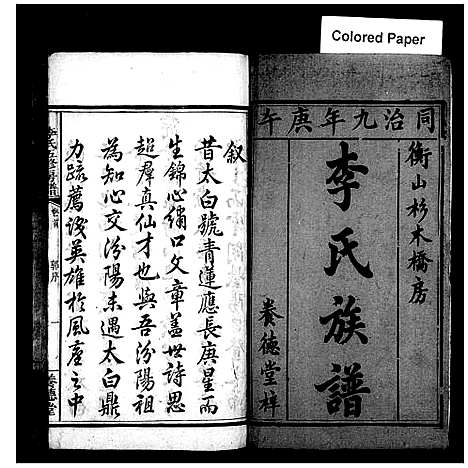 Colored Paper
同治九年庚午
衡山杉木橋房
李氏族譜
養德堂梓
叙
昔太白號青蓮應長庚星而
生錦心繡口文章蓋世詩思
超群真仙才也與吾汾陽祖
為知心交汾陽未遇太白鼎
力疏薦識英雄於風塵之中
卷首
郭序
一
養德堂